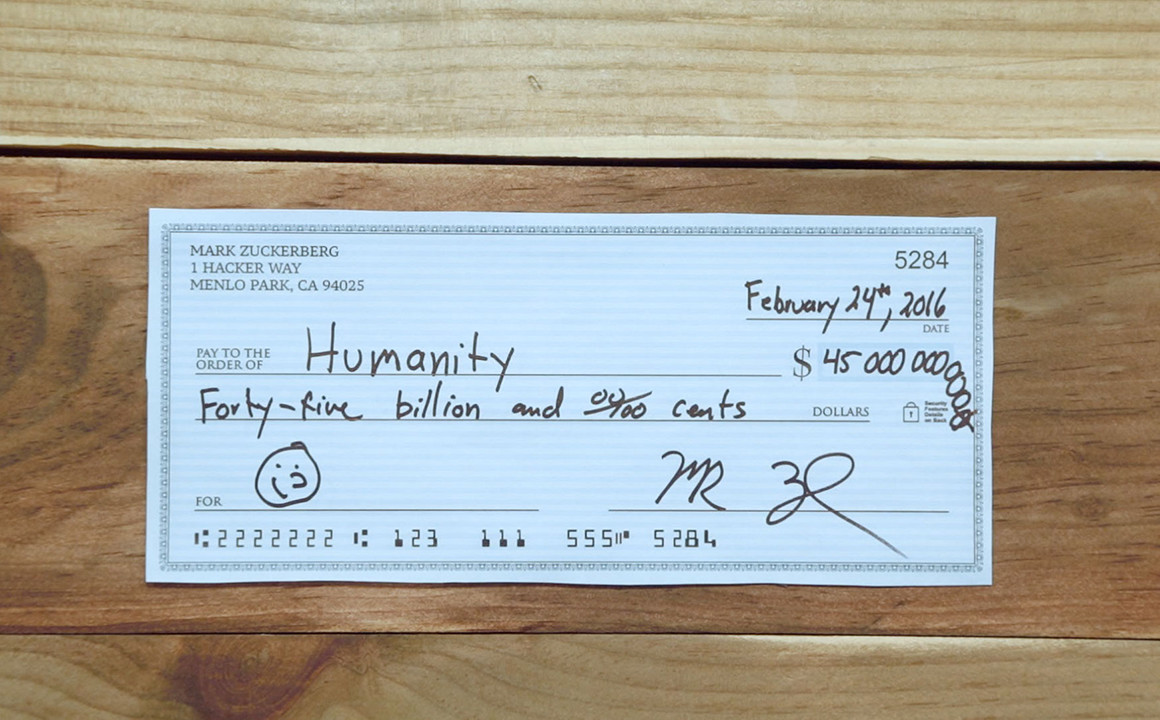 MARK ZUCKERBERG
1 HACKER WAY
MENLO PARK, CA 94025
5284
February 24th, 2016
DATE
PAY TO THE
ORDER OF
Humanity
$ 45 000 000 000
Forty-five billion and 00/100 cents
DOLLARS
Security
Features
Details
on Back
FOR
2222222 123 111 555 5284